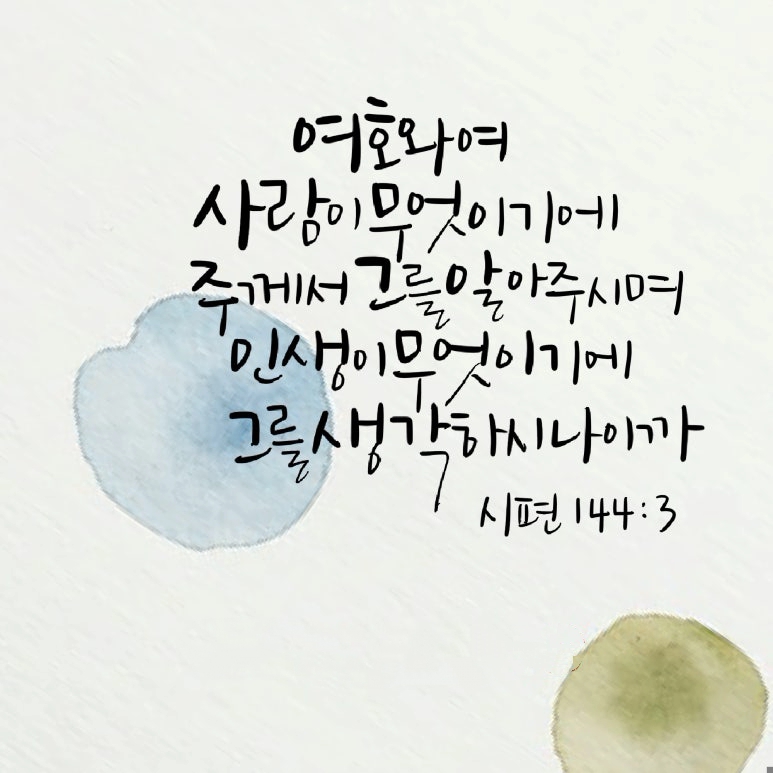 여호와여
사람이 무엇이기에
주께서 그를 알아주시며
인생이 무엇이기에
그를 생각하시나이까
시편 144:3